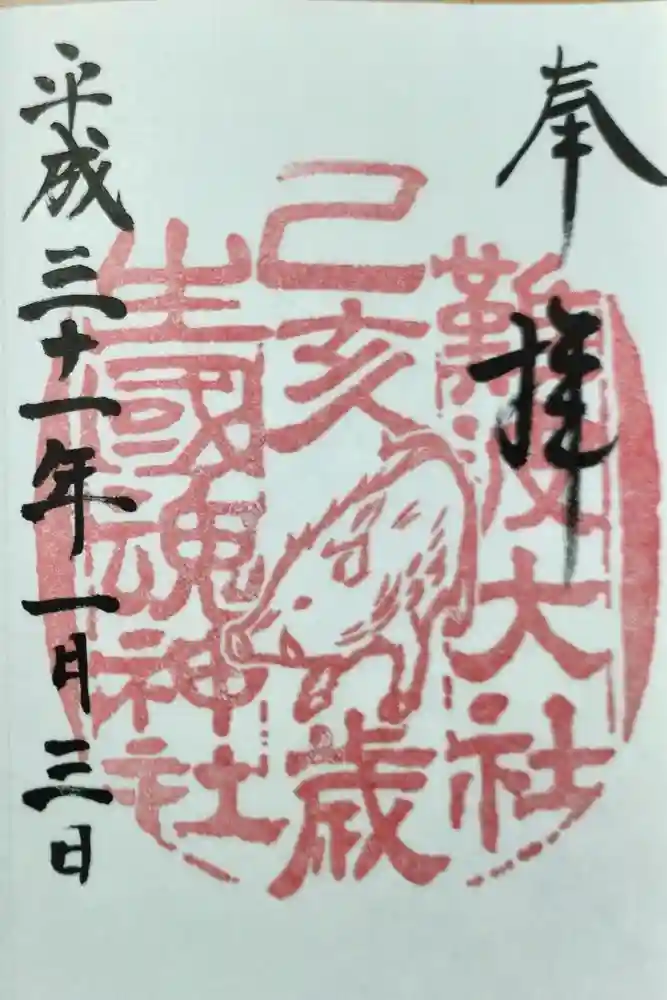 奉拝
難波大社
己亥歳
生國魂神社
平成三十一年一月三日